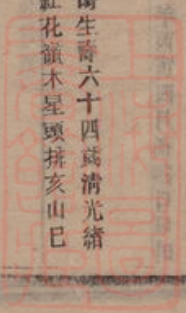 生壽六十四歲清光緒
紅花嶺木星頭排亥山巳